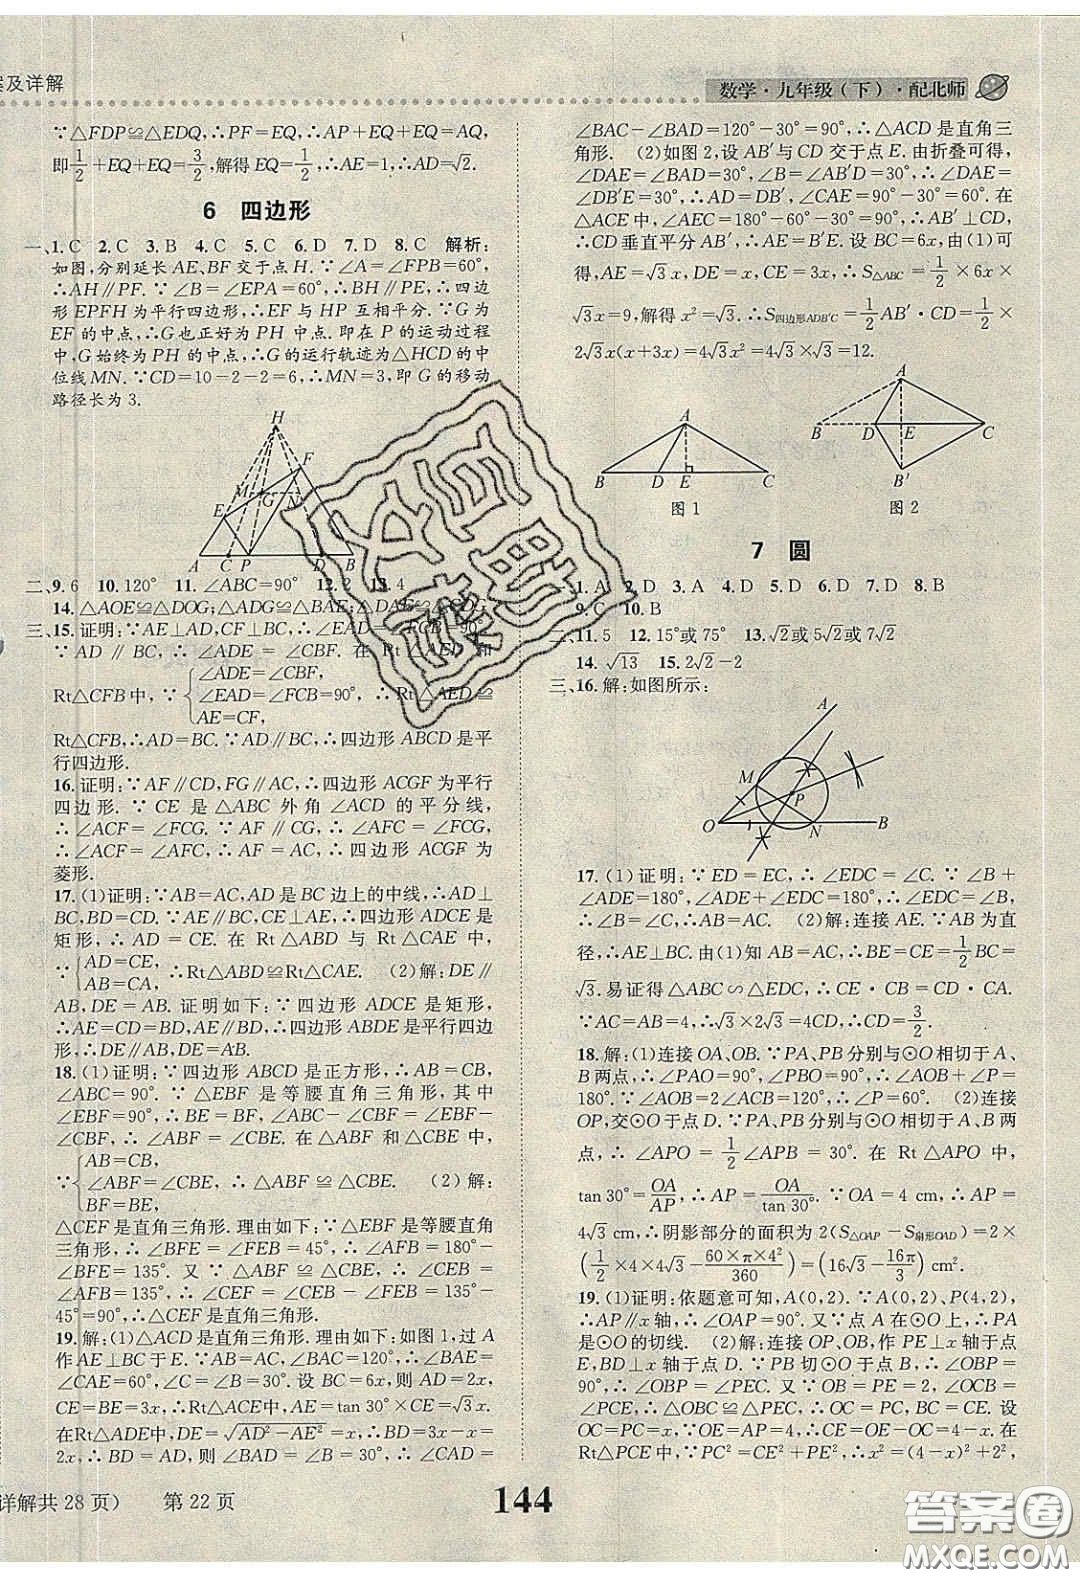 案及详解
数学·九年级(下)·配北师
∵△FDP≌△EDQ,∴PF=EQ,∴AP+EQ+EQ=AQ,
即1/2+EQ+EQ=3/2,解得EQ=1/2,∴AE=1,∴AD=√2.
6 四边形
一、1.C 2.C 3.B 4.C 5.C 6.D 7.D 8.C 解析:
如图,分别延长AE、BF交于点H.∵∠A=∠FPB=60°,
∴AH∥PF.∵∠B=∠EPA=60°,∴BH∥PE,∴四边
形EPFH为平行四边形,∴EF与HP互相平分.∵G为
EF的中点,∴G也正好为PH中点.即在P的运动过程
中,G始终为PH的中点,∴G的运行轨迹为△HCD的中
位线MN.∵CD=10-2-2=6,∴MN=3,即G的移动
路径长为3.
H
F
M
G
N
E
A C P D B
二、9.6 10.120° 11.∠ABC=90° 12.2 13.4
14.△AOE≌△DOG;△ADG≌△BAE;△DAE≌△CDG
三、15.证明:∵AE⊥AD,CF⊥BC,∴∠EAD=∠FCB=90°.
∵AD∥BC,∴∠ADE=∠CBF.在Rt△AED和
Rt△CFB中,∵{∠ADE=∠CBF, ∠EAD=∠FCB=90°, AE=CF, ∴Rt△AED≌
Rt△CFB,∴AD=BC.∵AD∥BC,∴四边形ABCD是平
行四边形.
16.证明:∵AF∥CD,FG∥AC,∴四边形ACGF为平行
四边形.∵CE是△ABC外角∠ACD的平分线,
∴∠ACF=∠FCG.∵AF∥CG,∴∠AFC=∠FCG,
∴∠ACF=∠AFC,∴AC=AF,∴四边形ACGF为
菱形.
17.(1)证明:∵AB=AC,AD是BC边上的中线,∴AD⊥
BC,BD=CD.∵AE∥BC,CE⊥AE,∴四边形ADCE是
矩形,∴AD=CE.在Rt△ABD与Rt△CAE中,
∵{AD=CE, AB=CA, ∴Rt△ABD≌Rt△CAE. (2)解:DE∥
AB,DE=AB.证明如下:∵四边形ADCE是矩形,
∴AE=CD=BD,AE∥BD,∴四边形ABDE是平行四边
形,∴DE∥AB,DE=AB.
18.(1)证明:∵四边形ABCD是正方形,∴AB=CB,
∠ABC=90°.∵△EBF是等腰直角三角形,其中
∠EBF=90°,∴BE=BF,∴∠ABC-∠CBF=∠EBF-
∠CBF,∴∠ABF=∠CBE.在△ABF和△CBE中,
∵{AB=CB, ∠ABF=∠CBE, BF=BE, ∴△ABF≌△CBE. (2)解:
△CEF是直角三角形.理由如下:∵△EBF是等腰直角
三角形,∴∠BFE=∠FEB=45°,∴∠AFB=180°-
∠BFE=135°.又∵△ABF≌△CBE,∴∠CEB=
∠AFB=135°,∴∠CEF=∠CEB-∠FEB=135°-
45°=90°,∴△CEF是直角三角形.
19.解:(1)△ACD是直角三角形.理由如下:如图1,过A
作AE⊥BC于E.∵AB=AC,∠BAC=120°,∴∠BAE=
∠CAE=60°,∠B=∠C=30°.设BC=6x,则BD=2x,
CE=BE=3x,∴DE=x.在Rt△ACE中,AE=tan30°×CE=√3x.
在Rt△ADE中,DE=√(AD²-AE²)=x,∴BD=3x-x=
2x,∴BD=AD,则∠BAD=∠B=30°,∴∠CAD=
∠BAC-∠BAD=120°-30°=90°,∴△ACD是直角三
角形. (2)如图2,设AB′与CD交于点E.由折叠可得,
∠DAE=∠BAD=30°,∠B=∠AB′D=30°,∴∠DAE=
∠DB′E=30°,∴AD=DB′,∠CAE=90°-30°=60°.在
△ACE中,∠AEC=180°-60°-30°=90°,∴AB′⊥CD,
∴CD垂直平分AB′,∴AE=B′E.设BC=6x,由(1)可
得,AE=√3x,DE=x,CE=3x,∴S△ABC=1/2×6x×
√3x=9,解得x²=√3.∴S四边形ADB′C=1/2AB′·CD=1/2×
2√3x(x+3x)=4√3x²=4√3×√3=12.
A
B D E C
图1
A
B D E C
B′
图2
7 圆
一、1.A 2.D 3.A 4.D 5.D 6.D 7.D 8.B
9.C 10.B
二、11.5 12.15°或75° 13.√2或5√2或7√2
14.√13 15.2√2-2
三、16.解:如图所示:
A
M
P
O N B
17.(1)证明:∵ED=EC,∴∠EDC=∠C.∵∠B+
∠ADE=180°,∠ADE+∠EDC=180°,∴∠EDC=∠B,
∴∠B=∠C,∴AB=AC. (2)解:连接AE.∵AB为直
径,∴AE⊥BC.由(1)知AB=AC,∴BE=CE=1/2BC=
√3.易证得△ABC∽△EDC,∴CE·CB=CD·CA.
∵AC=AB=4,∴√3×2√3=4CD,∴CD=3/2.
18.解:(1)连接OA、OB.∵PA、PB分别与⊙O相切于A、
B两点,∴∠PAO=90°,∠PBO=90°,∴∠AOB+∠P=
180°.∵∠AOB=2∠ACB=120°,∴∠P=60°. (2)连接
OP,交⊙O于点D.∵PA、PB分别与⊙O相切于A、
B两点,∴∠APO=1/2∠APB=30°.在Rt△APO中,
tan30°=OA/AP,∴AP=OA/tan30°.∵OA=4 cm,∴AP=
4√3 cm,∴阴影部分的面积为2(S△OAP-S扇形OAD)=2×
(1/2×4×4√3-60×π×4²/360)=(16√3-16π/3)cm².
19.(1)证明:依题意可知,A(0,2).∵A(0,2)、P(4,2),
∴AP∥x轴,∴∠OAP=90°.又∵点A在⊙O上,∴PA
是⊙O的切线. (2)解:连接OP、OB,作PE⊥x轴于点
E,BD⊥x轴于点D.∵PB切⊙O于点B,∴∠OBP=
90°,∴∠OBP=∠PEC.又∵OB=PE=2,∠OCB=
∠PCE,∴△OBC≌△PEC,∴OC=PC,BC=CE.设
OC=PC=x.∵OE=AP=4,∴CE=OE-OC=4-x.在
Rt△PCE中,∵PC²=CE²+PE²,∴x²=(4-x)²+2²,
详解共28页) 第22页
144
答案圈
MXQE.COM